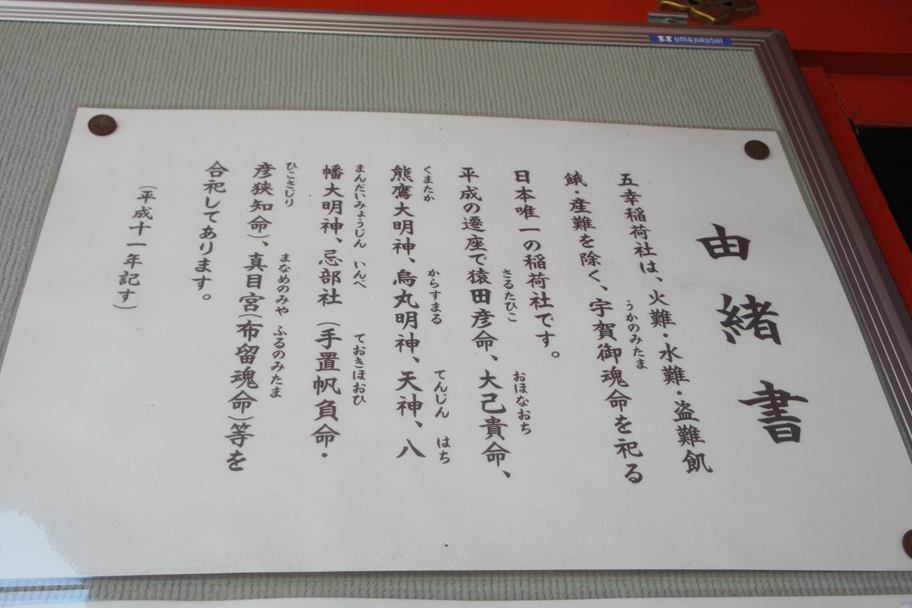 UMAJIRUSHI
由緒書
五幸稲荷社は、火難・水難・盗難飢
餓・産難を除く、宇賀御魂命を祀る
うかのみたま
日本唯一の稲荷社です。
平成の遷座で猿田彦命、大己貴命、
さるたひこ おほなおち
熊鷹大明神、烏丸明神、天神、八
くまたか からすまる てんじん はち
幡大明神、忌部社(手置帆負命・
まんだいみょうじん いんべ ておきほおひ
彦狭知命)、真目宮(布留魂命)等を
ひこさじり まなめのみや ふるのみたま
合祀してあります。
(平成十一年記す)